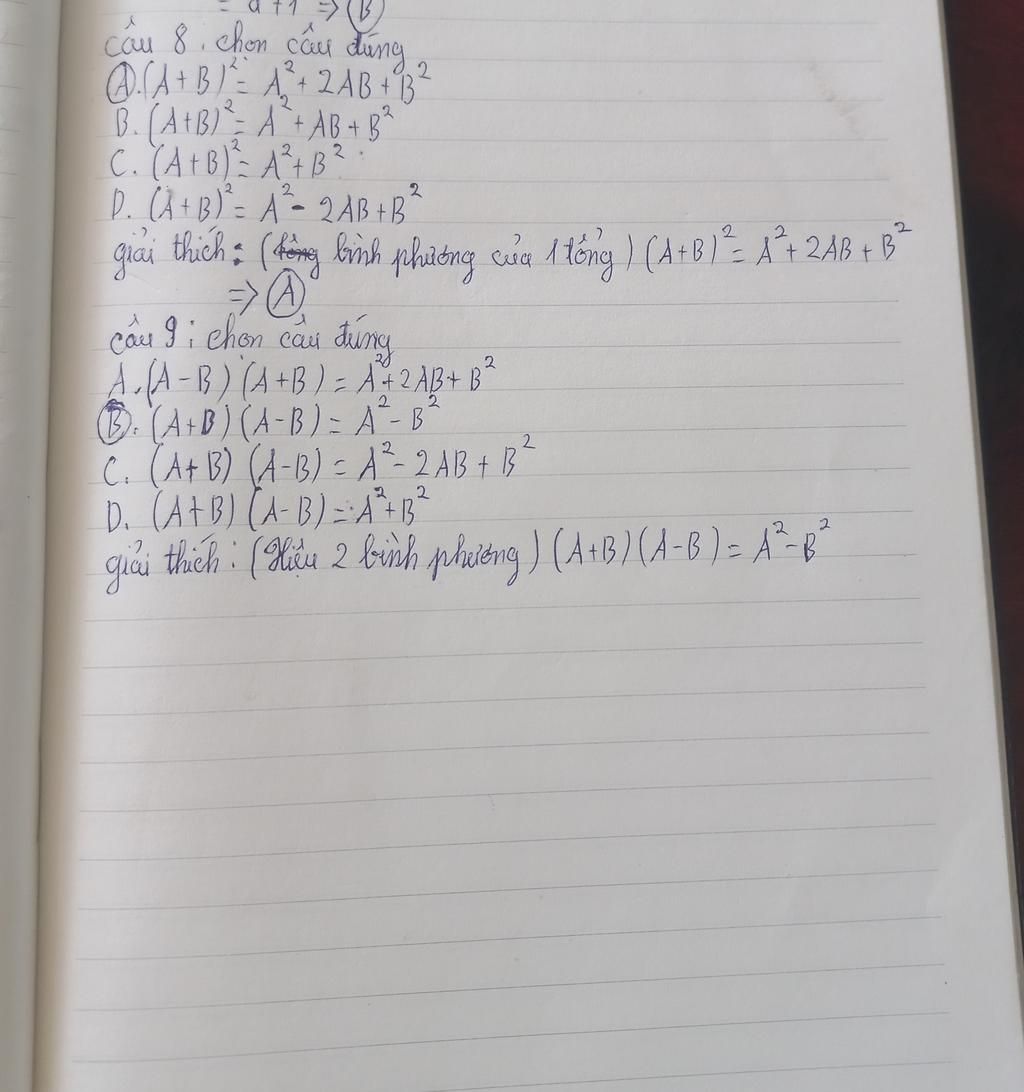 = a + 1 => (B)
câu 8. chọn câu đúng
A. (A+B)² = A² + 2AB + B²
B. (A+B)² = A² + AB + B²
C. (A+B)² = A² + B²
D. (A+B)² = A² - 2AB + B²
giải thích: (bình phương của 1 tổng) (A+B)² = A² + 2AB + B²
=> A
câu 9: chọn câu đúng
A. (A-B) (A+B) = A² + 2AB + B²
B. (A+B) (A-B) = A² - B²
C. (A+B) (A-B) = A² - 2AB + B²
D. (A+B) (A-B) = A² + B²
giải thích: (Hiệu 2 bình phương) (A+B) (A-B) = A² - B²